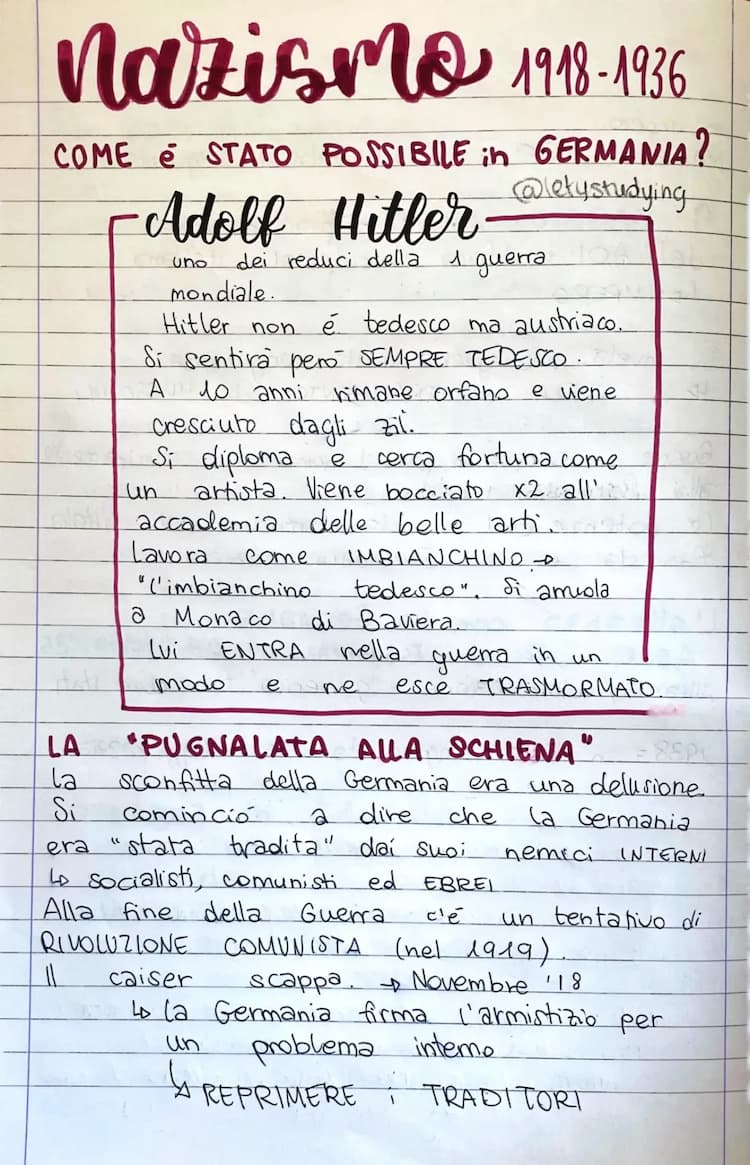 nazismo 1918-1936
COME é STATO POSSIBILE in GERMANIA?
@letystudying
Adolf Hitler
uno dei reduci della 1 guerra
mondiale.
Hitler non é tedesco ma austriaco.
Si sentirà però SEMPRE TEDESCO.
A 10 anni rimane orfano e viene
cresciuto dagli zii.
Si diploma e cerca fortuna come
un artista. Viene bocciato x2 all'
accademia delle belle arti.
Lavora come IMBIANCHINO →
"l'imbianchino tedesco". Si arruola
a Monaco di Baviera.
lui ENTRA nella guerra in un
modo e ne esce TRASMORMATO
LA "PUGNALATA ALLA SCHIENA"
la sconfitta della Germania era una delusione
Si cominció a dire che la Germania
era "stata tradita" dai suoi nemici INTERNI
↳ socialisti, comunisti ed EBREI
Alla fine della Guerra c'é un tentativo di
RIVOLUZIONE COMUNISTA (nel 1919).
Il caiser scappa. → Novembre '18
↳ la Germania firma l'armistizio per
un problema interno
↳ REPRIMERE i TRADITORI